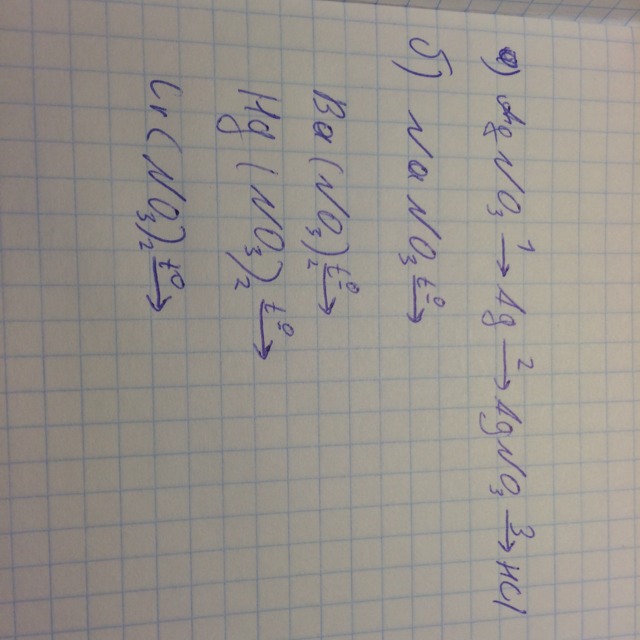 а) AgNO₃ →¹ Ag →² AgNO₃ →³ HCl
б) NaNO₃ t° →
Ba(NO₃)₂ t° →
Hg(NO₃)₂ t° →
Cr(NO₃)₂ t° →